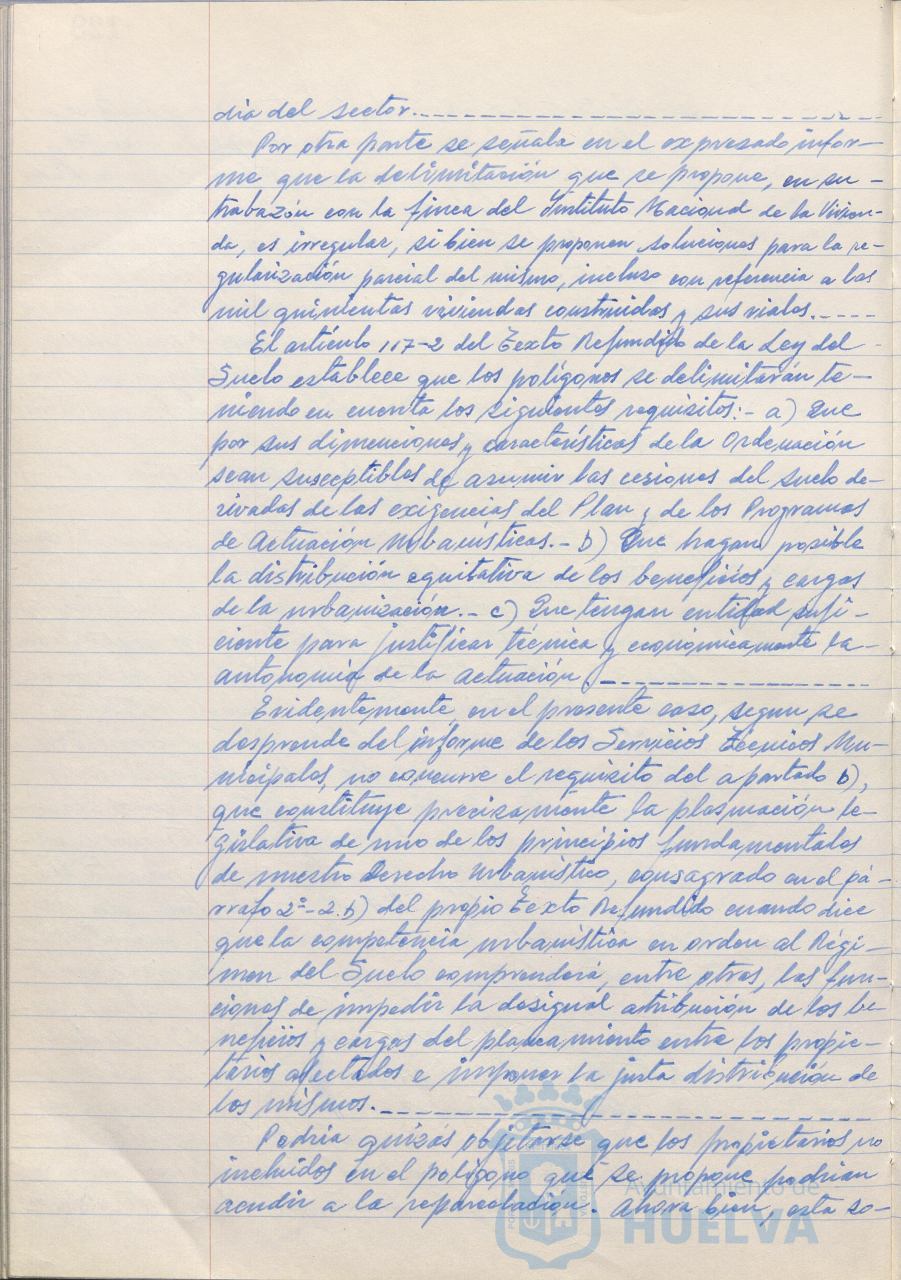 dia del sector.
Por otra parte se señala en el expresado infor-
me que la delimitación que se propone, en su -
trabazón con la finca del Instituto Nacional de la Vivien-
da, es irregular, si bien se proponen soluciones para la re-
gularización parcial del mismo, incluso con referencia a las
mil quinientas viviendas construidas y sus viales.
El artículo 117-2 del Texto Refundido de la Ley del
Suelo establece que los polígonos se delimitarán te-
niendo en cuenta los siguientes requisitos:- a) Que
por sus dimenciones y características de la Ordenación
sean susceptibles de asumir las cesiones del suelo de-
rivadas de las exigencias del Plan y de los Programas
de Actuación Urbanísticas.- b) Que hagan posible
la distribución equitativa de los beneficios y cargas
de la urbanización.- c) Que tengan entidad sufi-
ciente para justificar técnica y económicamente la-
autonomía de la actuación.
Evidentemente, en el presente caso, segun se
desprende del informe de los Servicios Técnicos Mu-
nicipales, no concurre el requisito del apartado b),
que constituye precisamente la plasmación le-
gislativa de uno de los principios fundamentales
de nuestro Derecho Urbanístico, consagrado en el pá-
rrafo 2º-2.b) del propio Texto Refundido cuando dice
que la competencia urbanística en orden al Régi-
men del Suelo comprenderá, entre otras, las fun-
ciones de impedir la desigual atribución de los be-
neficios y cargas del planeamiento entre los propie-
tarios afectados e imponer la justa distribución de
los mismos.
Podria quizás objetarse que los propietarios no
incluidos en el polígono que se propone podrian
acudir a la reparcelación. Ahora bien, esta so-
Ayuntamiento de
HUELVA